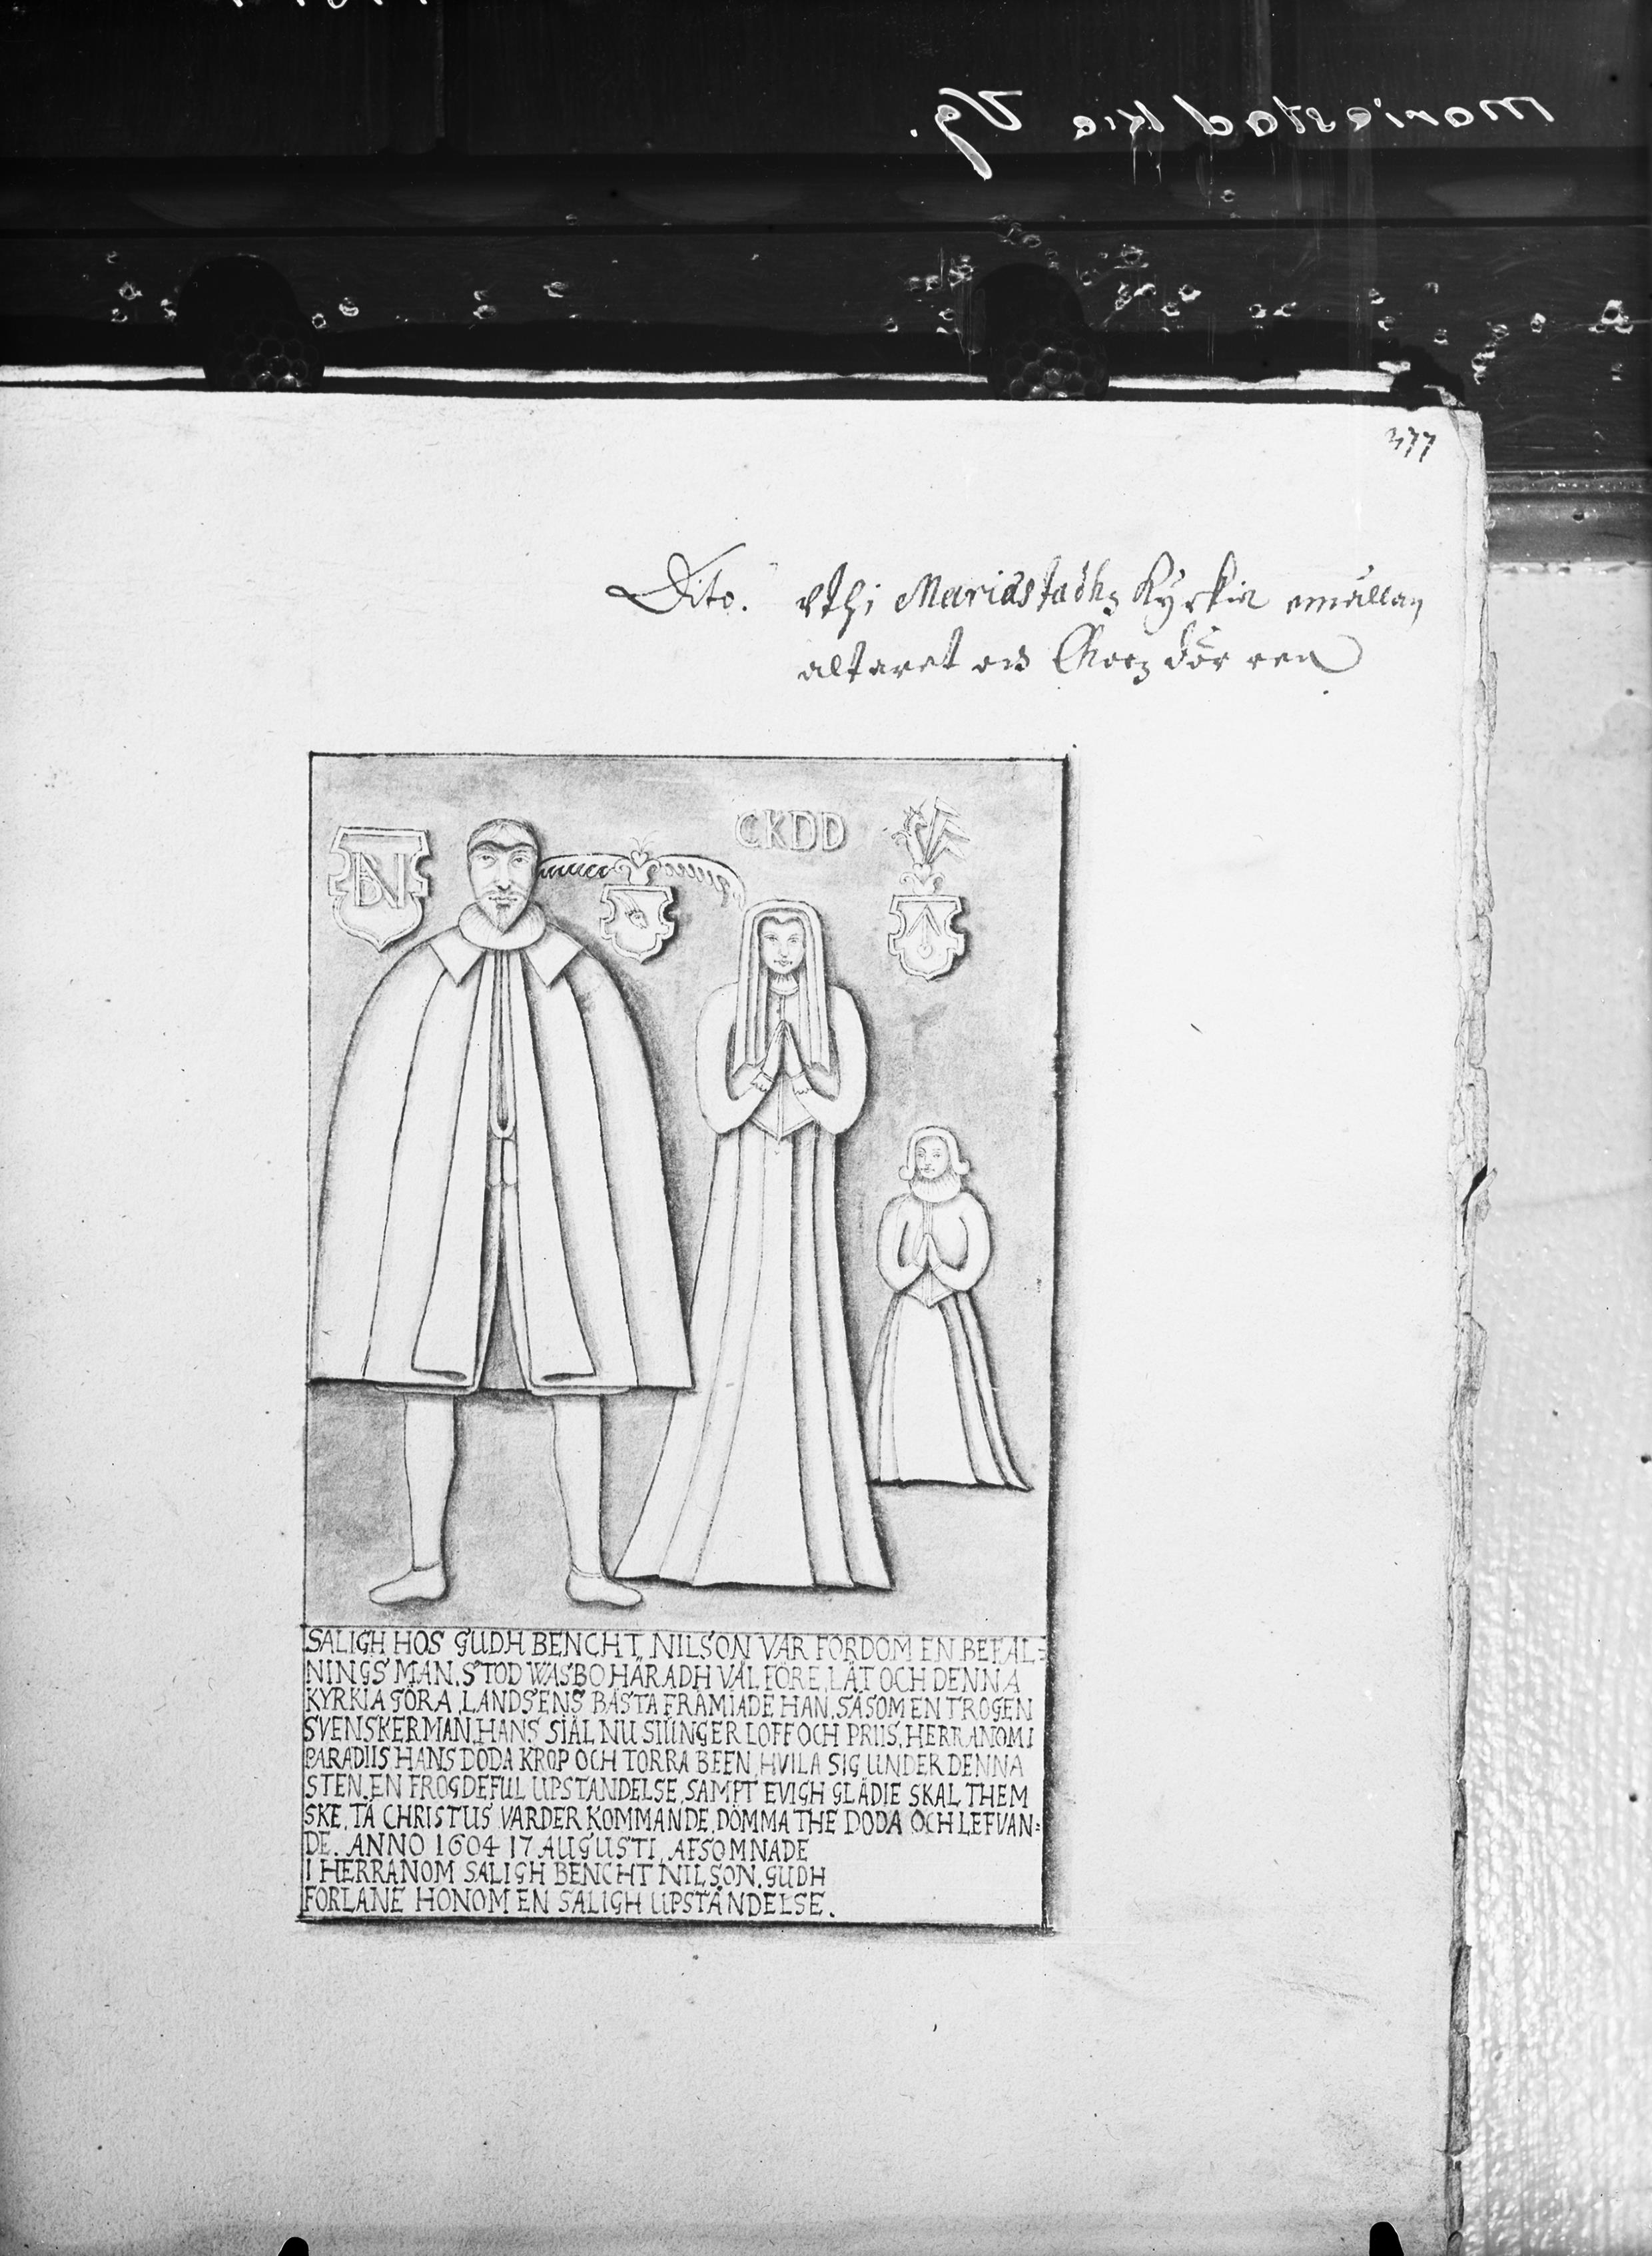 Mariestad kia Vg.
377
Dito. vthi Mariæstadhz Kyrkia emällan
altaret och Chorz dörren
CKDD
BN
SALIGH HOS GUDH BENCHT NILSON VAR FORDOM EN BEFAL=
NINGS MAN. STOD WASBO HÄRADH VÄL FÖRE, LÄT OCH DENNA
KYRKIA GÖRA, LANDSENS BÄSTA FRÄMIADE HAN, SÅSOM EN TROGEN
SVENSKERMAN, HANS SIÄL NU SIUNGER LOFF OCH PRIIS, HERRANOM I
PARADIIS HANS DÖDA KROP OCH TORRA BEEN, HVILA SIG UNDER DENNA
STEN, EN FROGDEFUL UPSTANDELSE, SAMPT EVIGH GLÄDIE SKAL THEM
SKE, TÅ CHRISTUS VARDER KOMMANDE, DÖMMA THE DODA OCH LEFVAN=
DE. ANNO 1604 17 AUGUSTI, AFSOMNADE
I HERRANOM SALIGH BENCHT NILSON. GUDH
FORLANE HONOM EN SALIGH UPSTÅNDELSE.